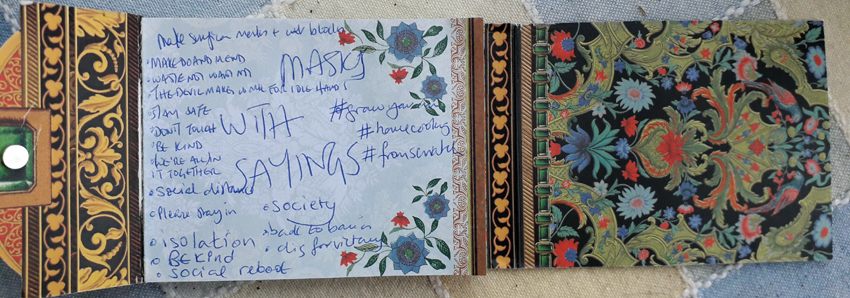 Make surgican masks + use
• MAKE DO AND MEND
• WASTE NOT WANT NOT
• THE DEVIL MAKES WORK FOR IDLE HANDS
STAY SAFE
• DON'T TOUCH
• BE KIND
• WE'RE ALL IN
IT TOGETHER
• Social distance
• Please stay in
• isolation
• BE KIND
• social reboot
MASKS
WITH
SAYINGS
#homecooking
#fromscratch
• Society
• back to basics
• dig for victory